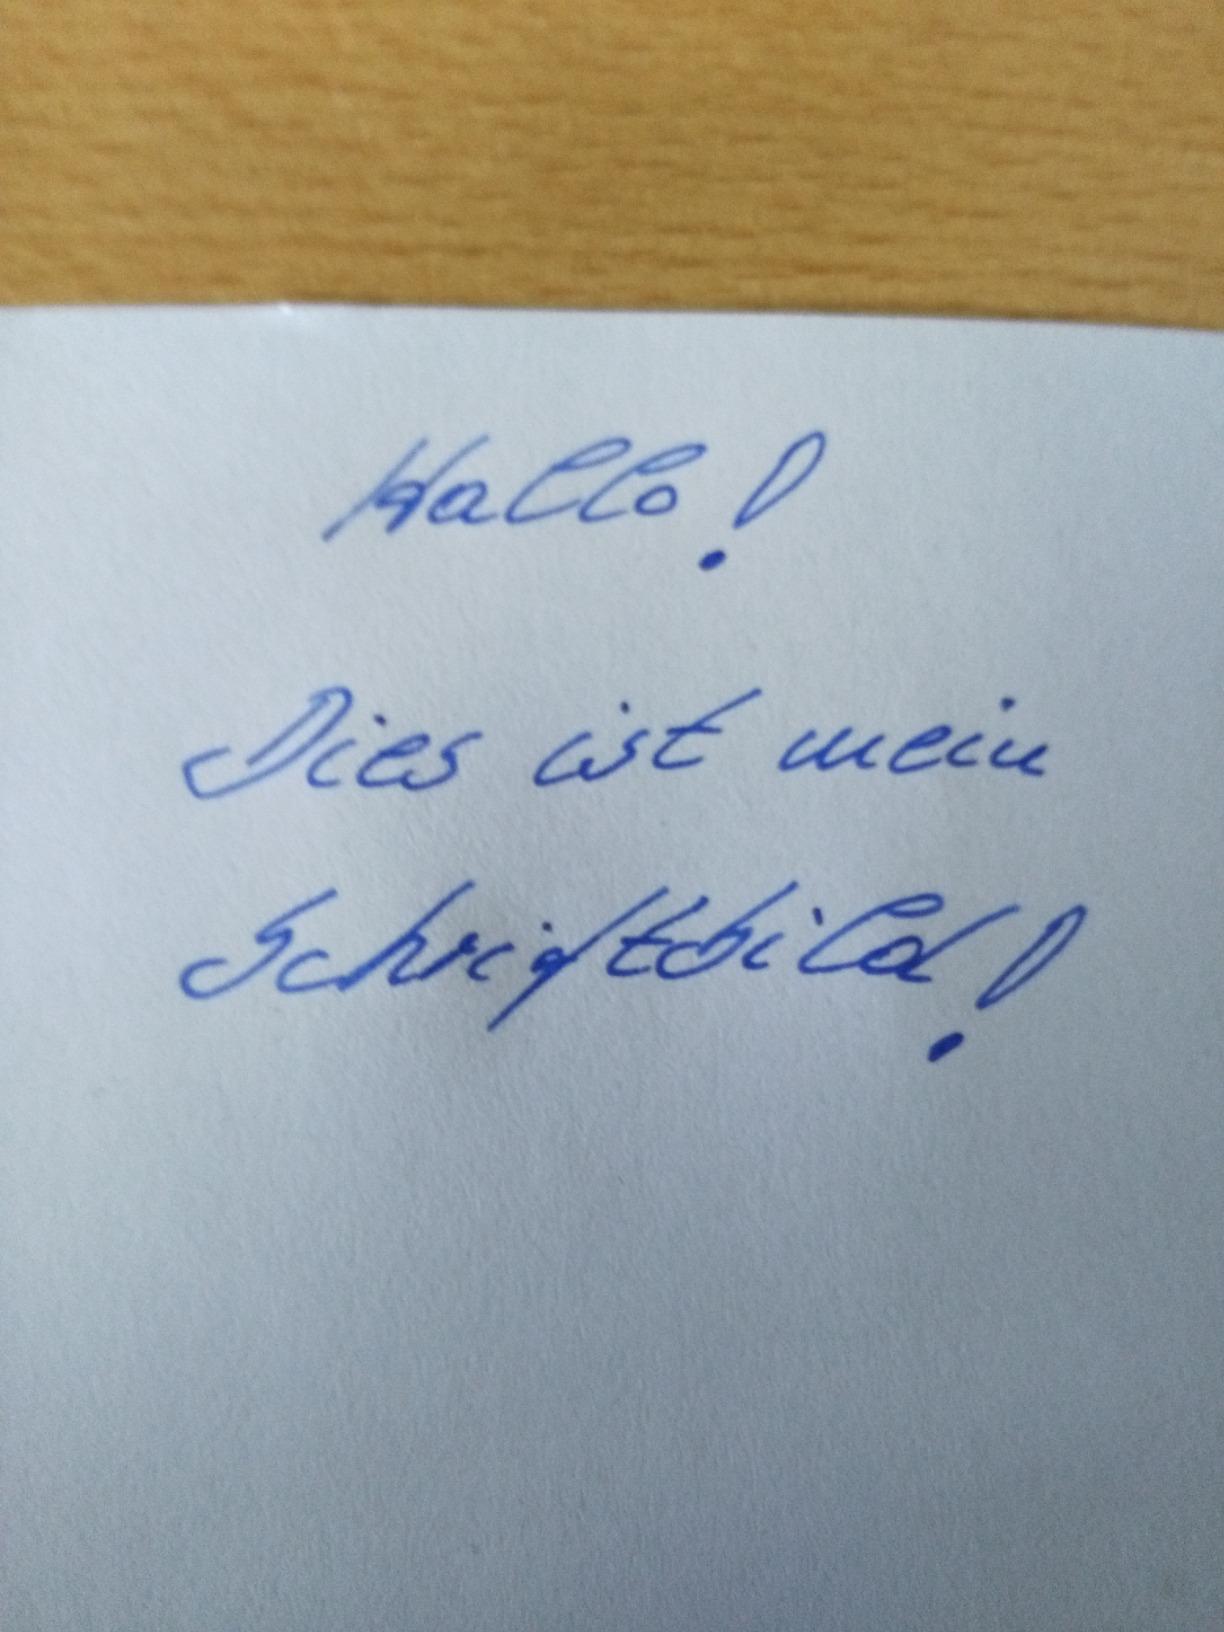 Hallo!
Dies ist mein
Schriftbild!